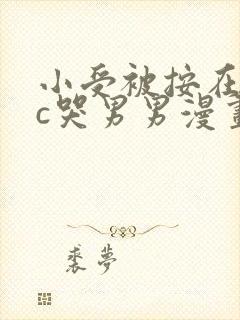 小受被按在
c哭男男漫畫
裘夢